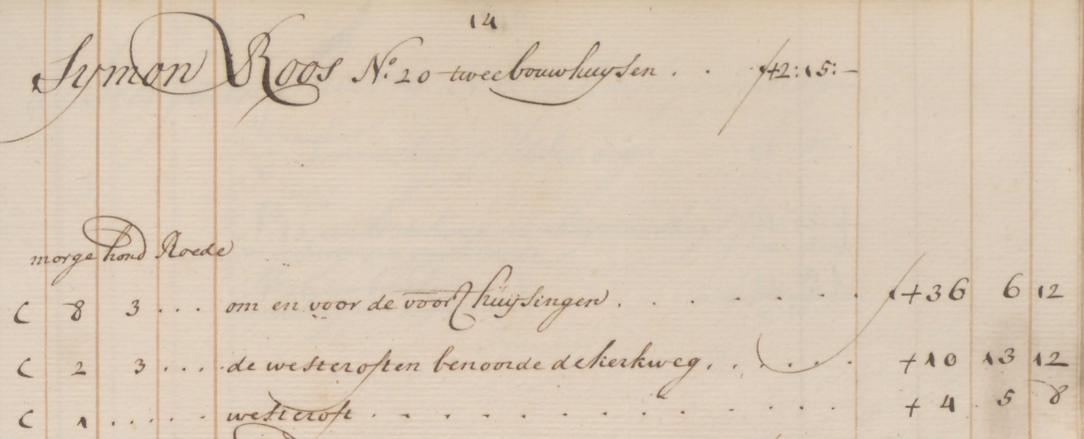 14
Symon Roos No. 20 twee bouwhuysen . . ƒ42:15:-
morge hond Roede
C 8 3 . . . om en voor de voors. huysingen . . . . . . . . ƒ+36 6 12
C 2 3 . . . . de westcroften benoorde de kerkweg . . . . . +10 13 12
C 1 . . . . . westcroft . . . . . . . . . . . . +4 5 8